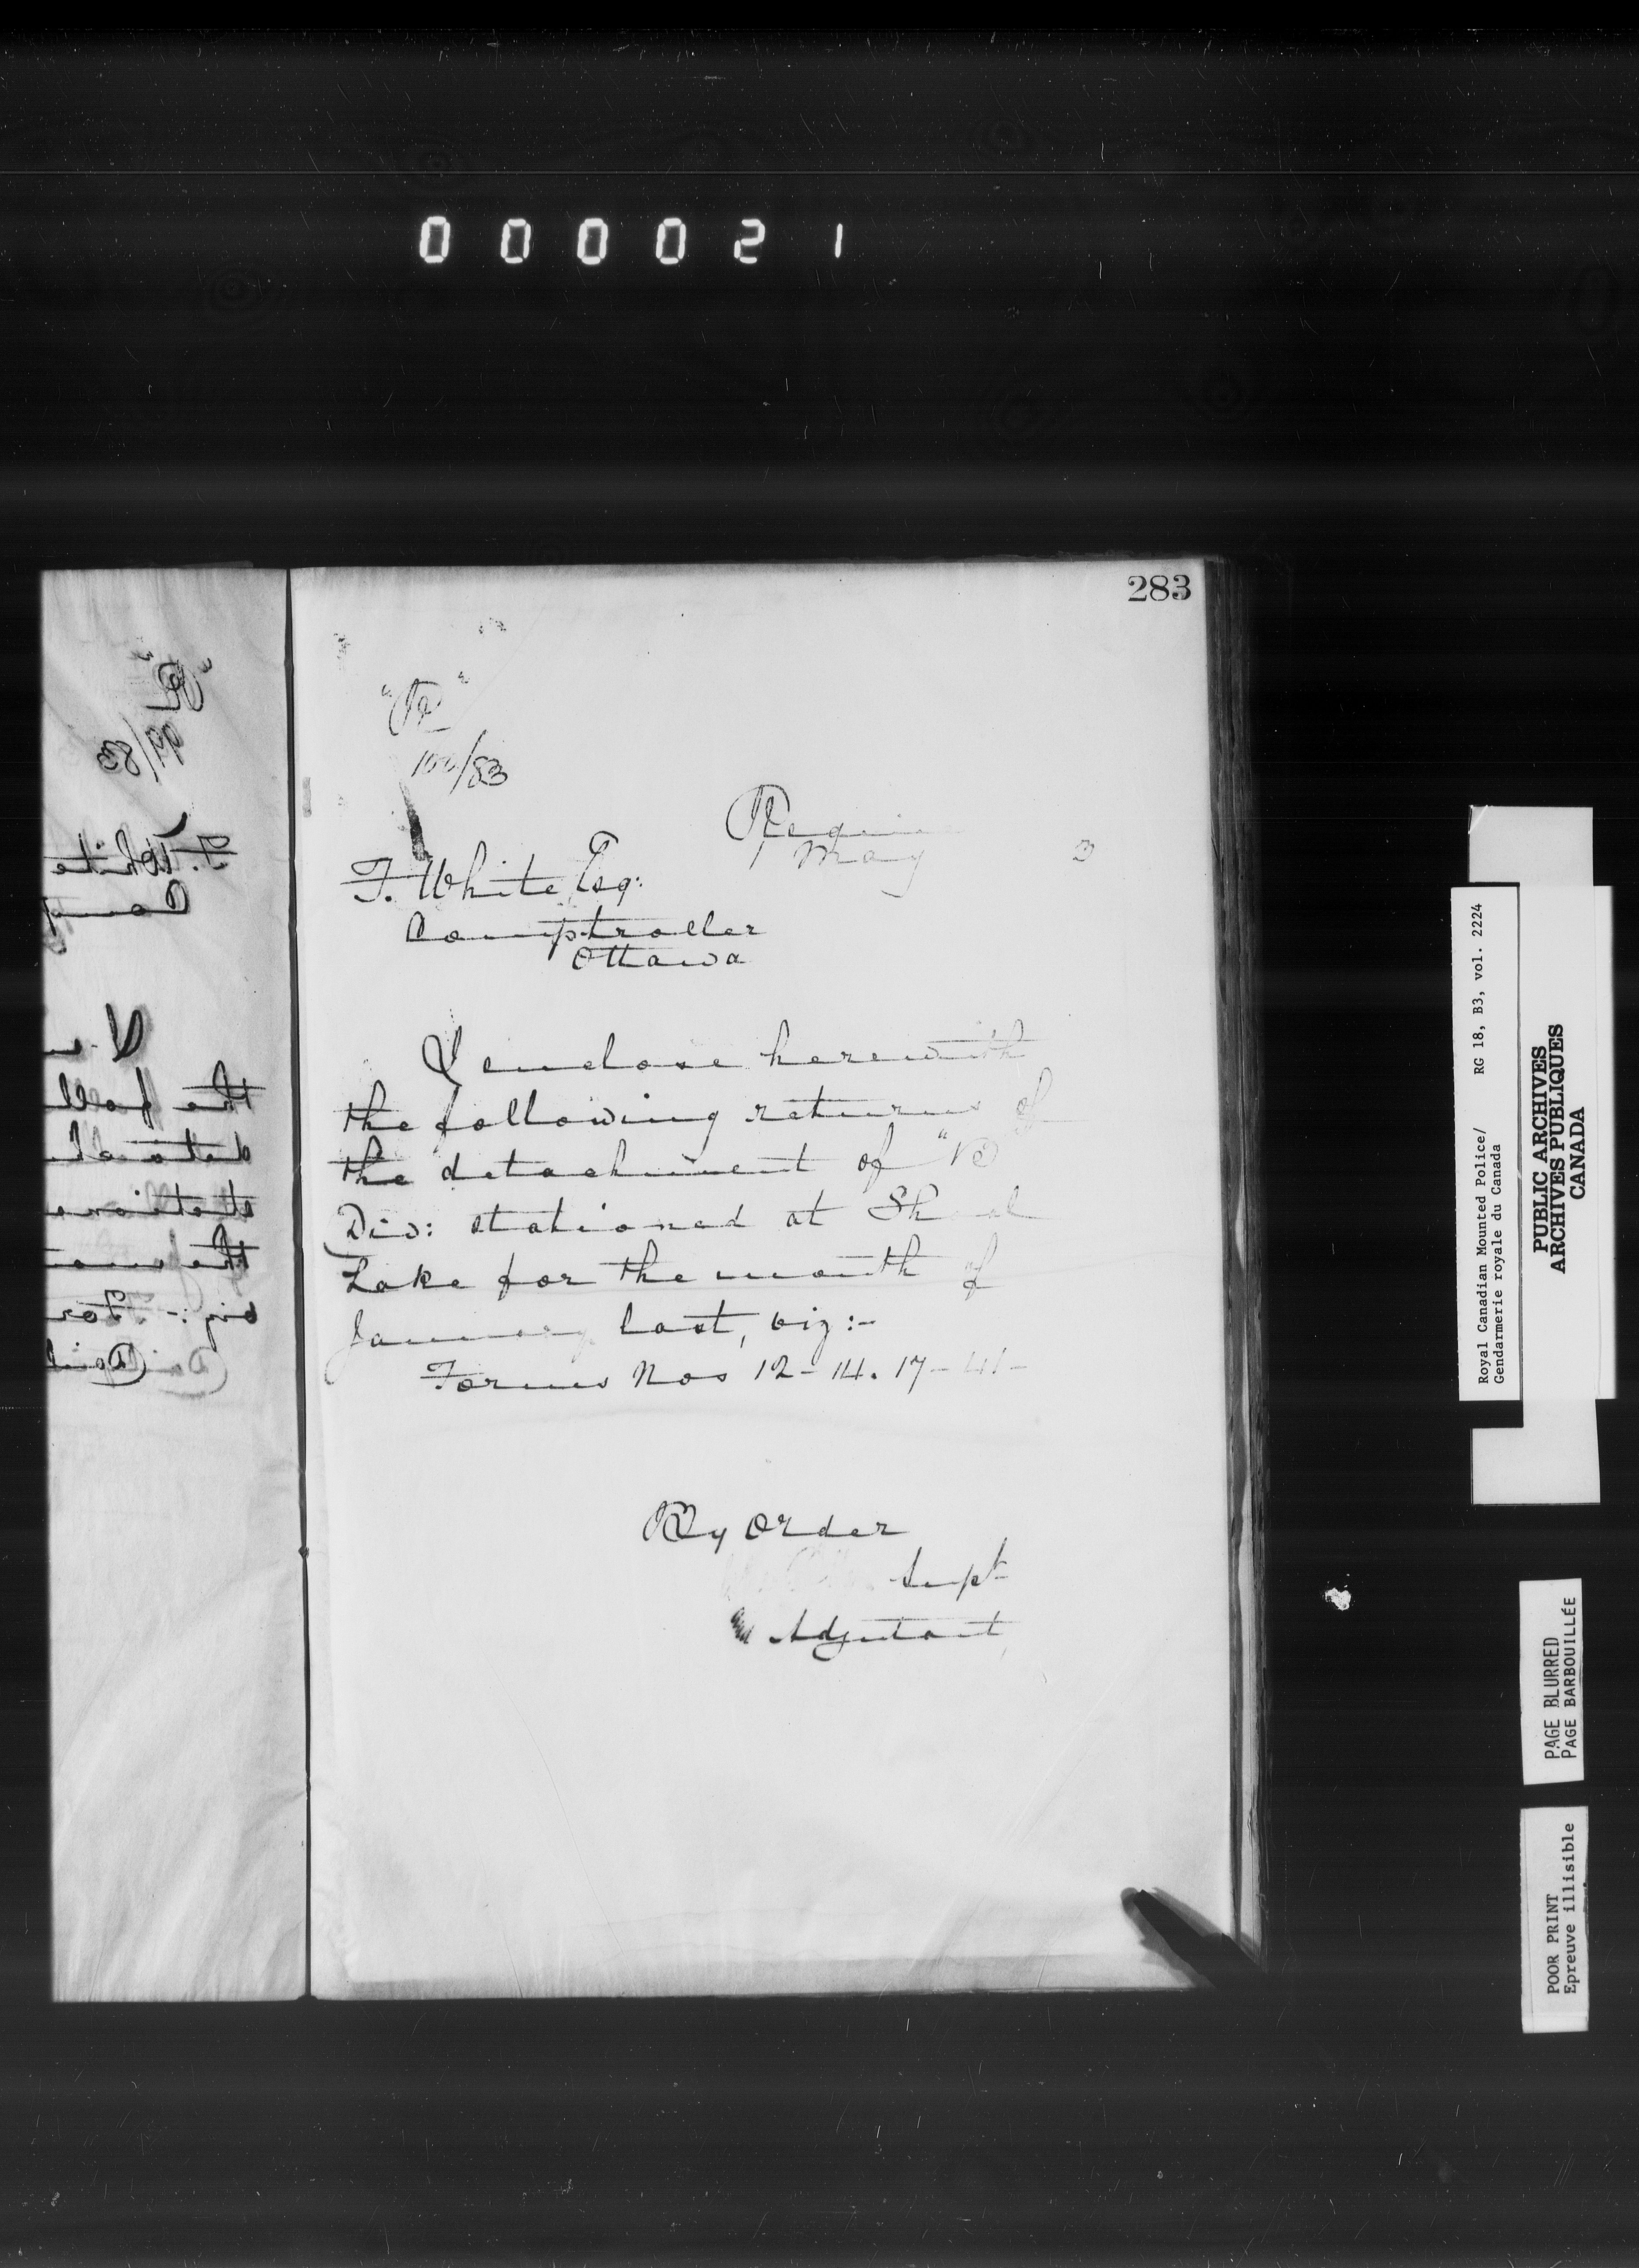 000021
283
"R"
100/83
Regina
1 May 3
F. White Esq:
Comptroller
Ottawa
I enclose herewith
the following returns of
the detachment of "B
Div: stationed at Shoal
Lake for the month of
January last, viz:-
Forms Nos 12-14. 17-41-
By Order
Supt
Adjutant
"R"
99/83
F. White
Comp
the foll
detach
statione
the mon
viz:- For
Royal Canadian Mounted Police/ RG 18, B3, vol. 2224
Gendarmerie royale du Canada
PUBLIC ARCHIVES
ARCHIVES PUBLIQUES
CANADA
PAGE BLURRED
PAGE BARBOUILLÉE
POOR PRINT
Epreuve illisible